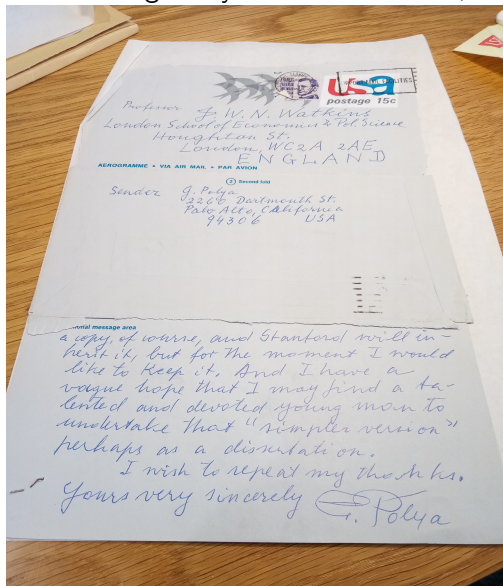 USA
postage 15c
Professor J. W. N. Watkins
London School of Economics & Pol Science
Houghton St.
London, WC2A 2AE
ENGLAND
AEROGRAMME • VIA AIR MAIL • PAR AVION
2 Second fold
Sender G. Polya
2260 Dartmouth St.
Palo Alto, California
94306 USA
onal message area
a copy, of course, and Stanford will in-
herit it, but for the moment I would
like to keep it. And I have a
vague hope that I may find a ta-
lented and devoted young man to
undertake that "simpler version"
perhaps as a dissertation.
I wish to repeat my thanks.
Yours very sincerely G. Polya